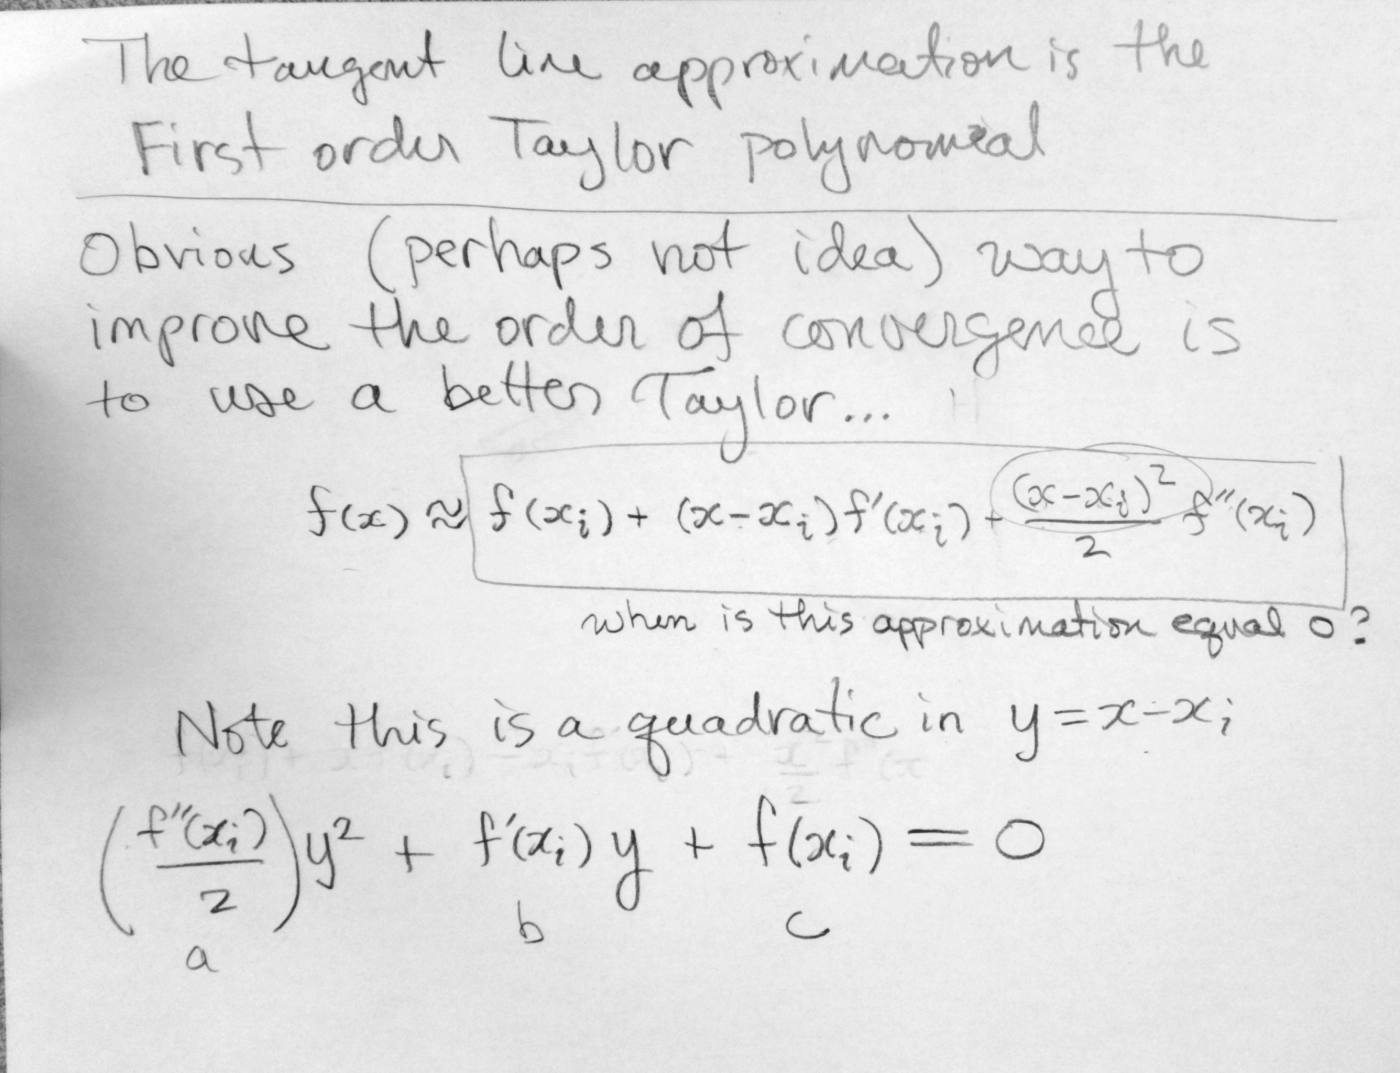 The tangent line approximation is the
First order Taylor polynomial
Obvious (perhaps not idea) way to
improve the order of convergence is
to use a better Taylor...
f(x) ≈ f(xᵢ) + (x-xᵢ) f'(xᵢ) + (x-xᵢ)²/2 f''(xᵢ)
when is this approximation equal 0?
Note this is a quadratic in y = x-xᵢ
(f''(xᵢ)/2) y² + f'(xᵢ) y + f(xᵢ) = 0
a b c